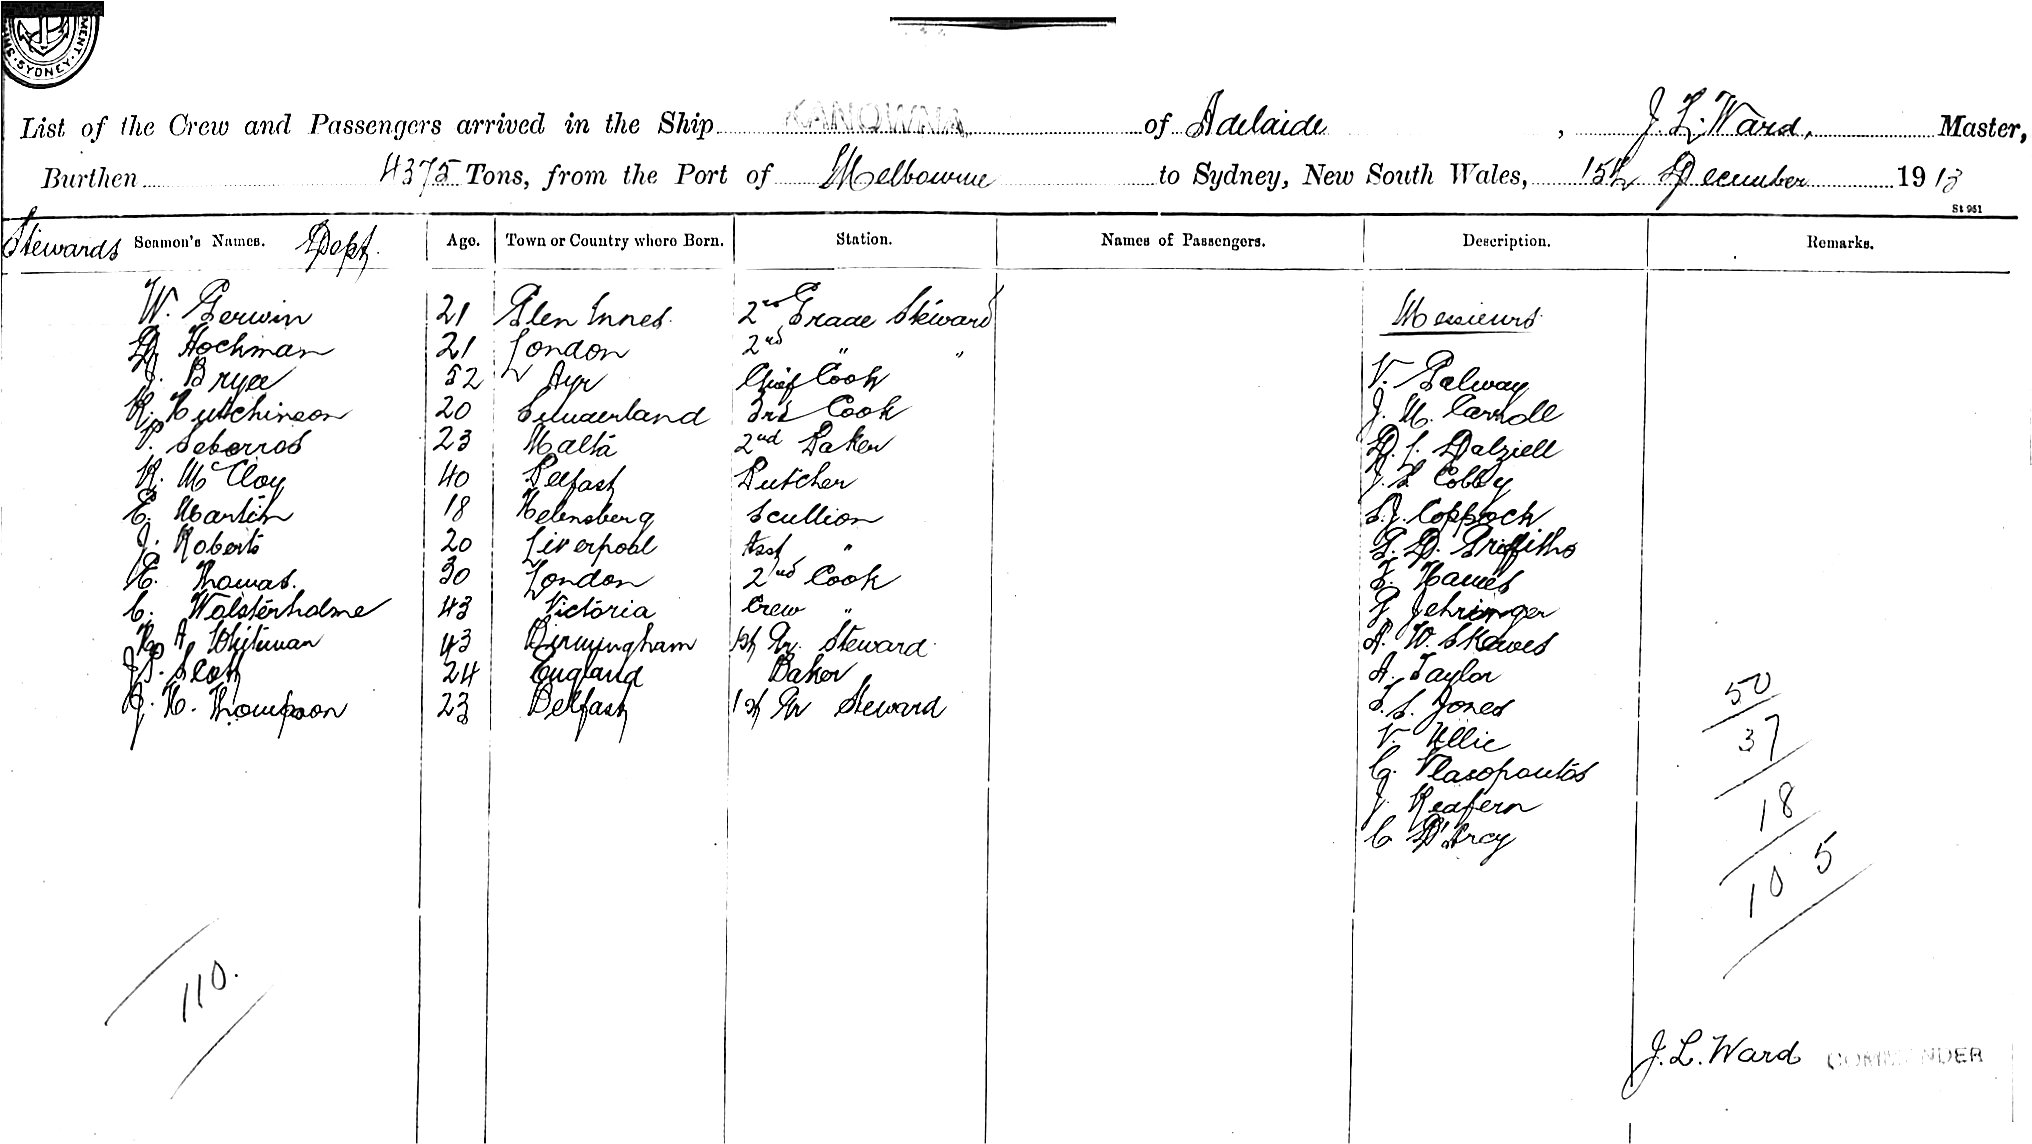 SYDNEY
List of the Crew and Passengers arrived in the Ship KANOWNA of Adelaide, J. L. Ward, Master,
Burthen 4375 Tons, from the Port of Melbourne to Sydney, New South Wales, 15th December 1913
St 961
Stewards Seamen's Names. Dept. Age. Town or Country where Born. Station. Names of Passengers. Description. Remarks.
W. Gerwin 21 Glen Innes. 2nd Grade Steward
Messieurs
D. Hochman 21 London 2nd " "
J. Bryce 52 Ayr Chief Cook
V. Galway
R. Hutchinson 20 Sunderland 3rd Cook
J. M. Carroll
V. Seberros 23 Malta 2nd Baker
D. S. Dalziell
R. McCloy 40 Belfast Butcher
J. S. Cobby
E. Martin 18 Helensberg Scullion
Coppock
J. Roberts 20 Liverpool Asst "
G. D. Griffiths
H. Thomas. 30 London 2nd Cook
Hawes
C. Wolsterholme 43 Victoria Crew "
Jehringer
A. Whiteman 43 Birmingham 1st Gr. Steward
A. W. Skewes
J. P. Scott 24 England Baker
A. Taylor
J. H. Thompson 23 Belfast 1st Gr Steward
S. S. Jones
V. Ullie
G. Vlasopoutos
J. Redfern
C D'Arcy
50
37
18
105
110.
J. L. Ward COMMANDER